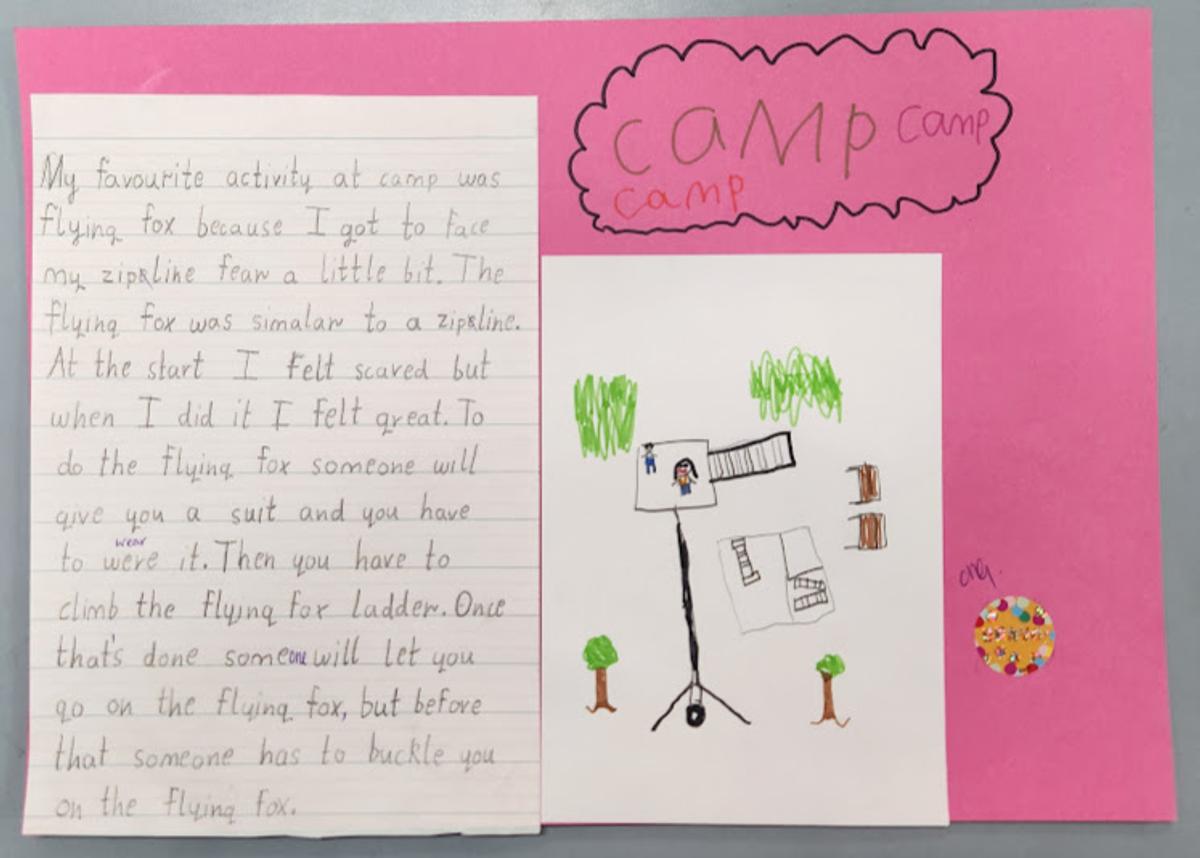 camp camp
camp
My favourite activity at camp was
flying fox because I got to face
my zipline fear a little bit. The
flying fox was simalar to a zipline.
At the start I felt scared but
when I did it I felt great. To
do the flying fox someone will
give you a suit and you have
wear
to were it. Then you have to
climb the flying fox ladder. Once
that's done someone will let you
go on the flying fox, but before
that someone has to buckle you
on the flying fox.